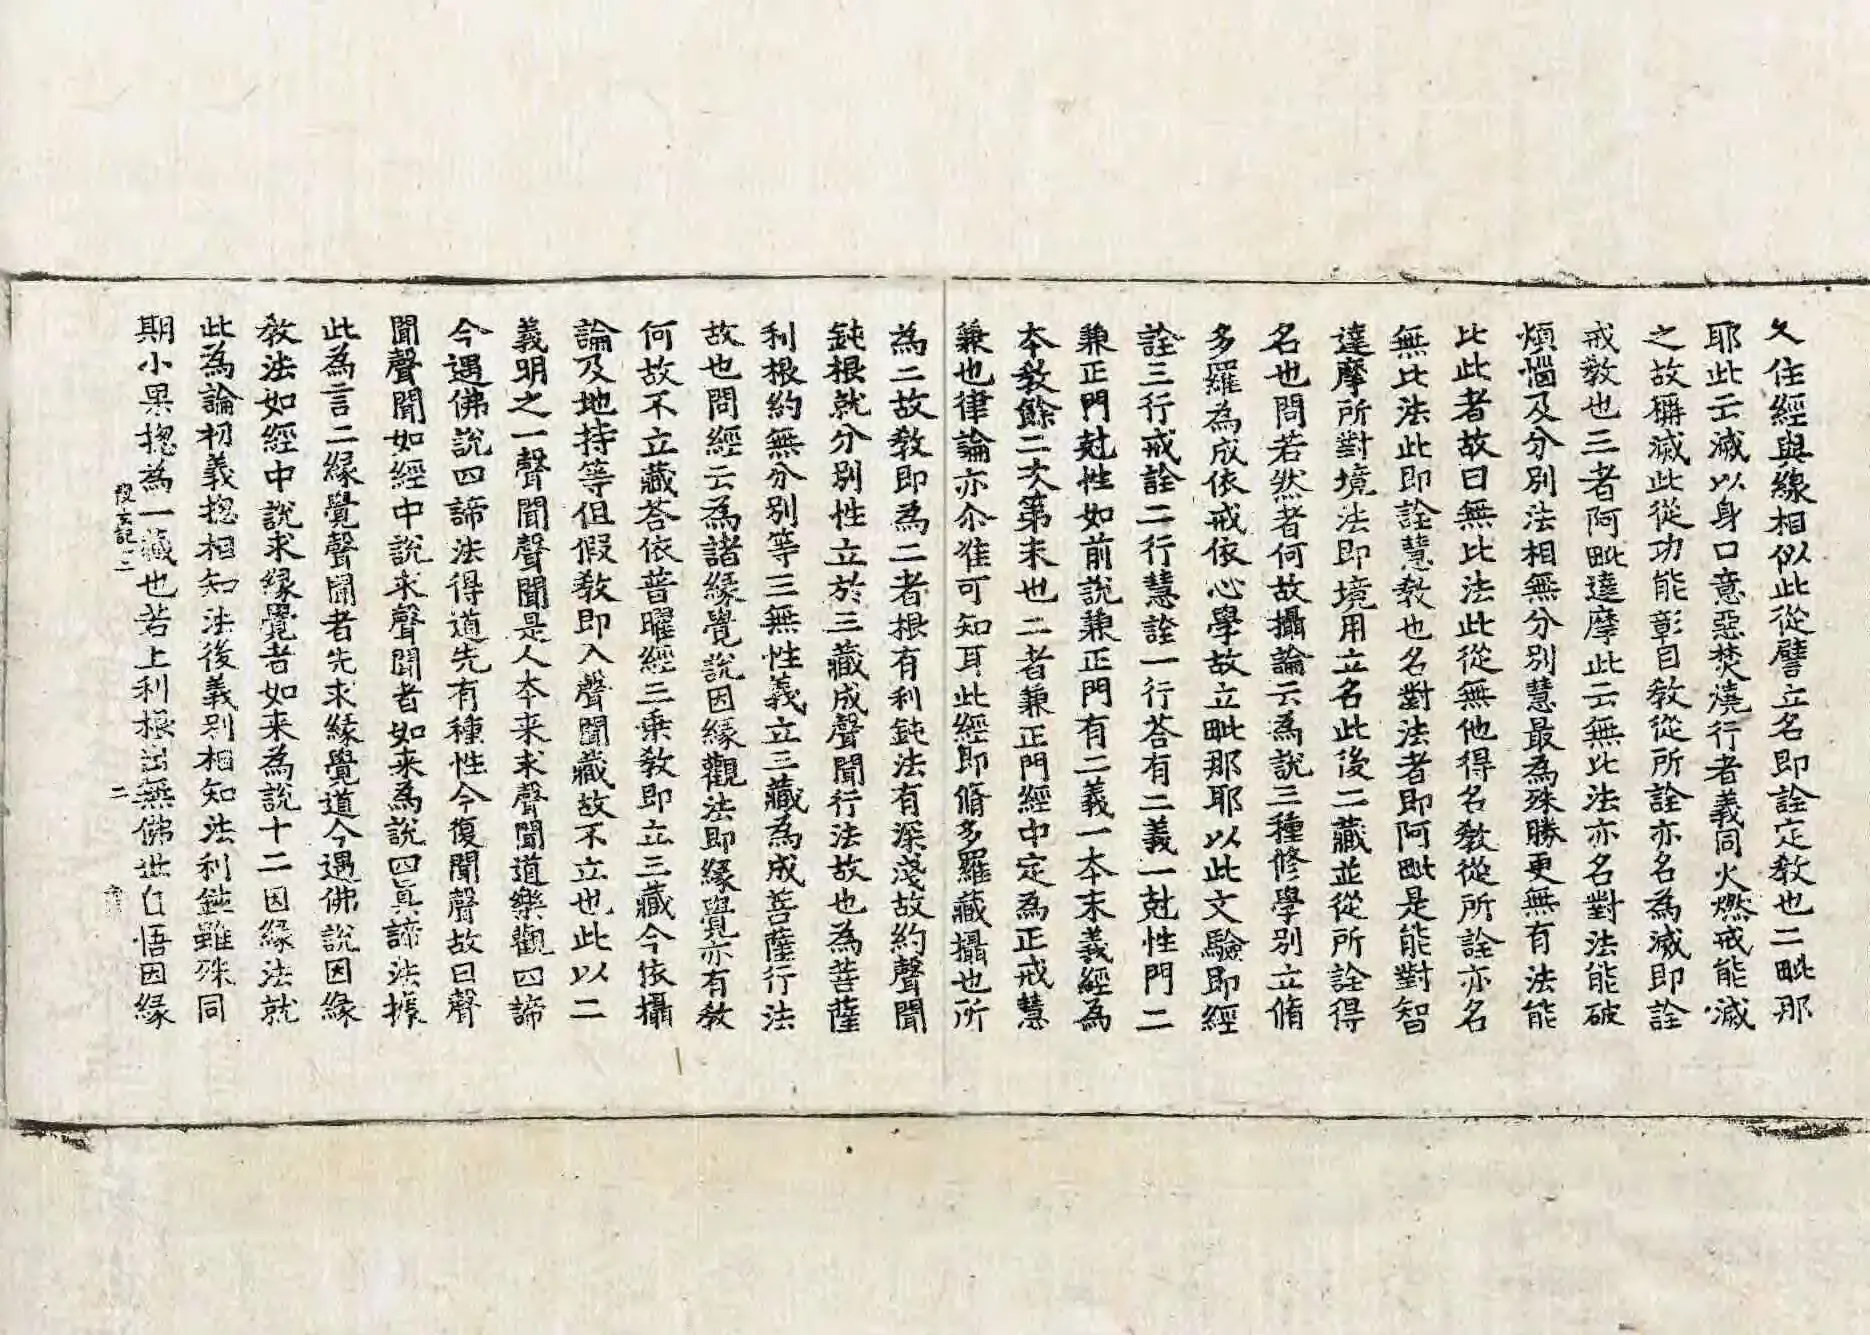 久住經與線相似此從譬立名即詮定教也二毗那
耶此云滅以身口意惡焚燒行者義同火燃戒能滅
之故稱滅此從功能彰目教從所詮亦名為滅即詮
戒教也三者阿毗達摩此云無比法亦名對法能破
煩惱及分別法相無分別慧最為殊勝更無有法能
比此者故曰無比法此從無他得名教從所詮亦名
無比法此即詮慧教也名對法者即阿毗是能對智
達摩所對境法即境用立名此後二藏並從所詮得
名也問若然者何故攝論云為說三種修學別立脩
多羅為成依戒依心學故立毗那耶以此文驗即經
詮三行戒詮二行慧詮一行荅有二義一剋性門二
兼正門剋性如前說兼正門有二義一本末義經為
本教餘二次第末也二者兼正門經中定為正戒慧
兼也律論亦尒准可知耳此經即脩多羅藏攝也所
為二故教即為二者根有利鈍法有深淺故約聲聞
鈍根就分別性立於三藏成聲聞行法故也為菩薩
利根約無分別等三無性義立三藏為成菩薩行法
故也問經云為諸緣覺說因緣觀法即緣覺亦有教
何故不立藏荅依普曜經三乗教即立三藏今依攝
論及地持等但假教即入聲聞藏故不立也此以二
義明之一聲聞聲聞是人本来求聲聞道樂觀四諦
今遇佛說四諦法得道先有種性今復聞聲故曰聲
聞聲聞如經中說求聲聞者如来為說四真諦法據
此為言二緣覺聲聞者先求緣覺道今遇佛說因緣
教法如經中說求緣覺者如来為說十二因緣法就
此為論初義揔相知法後義別相知法利鈍雖殊同
期小果揔為一藏也若上利根出無佛世自悟因緣
二